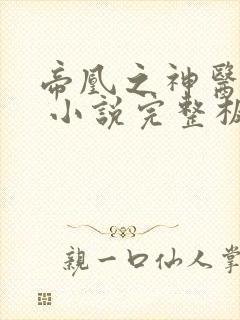 帝凰之神醫
小說完整板
親一口仙人掌